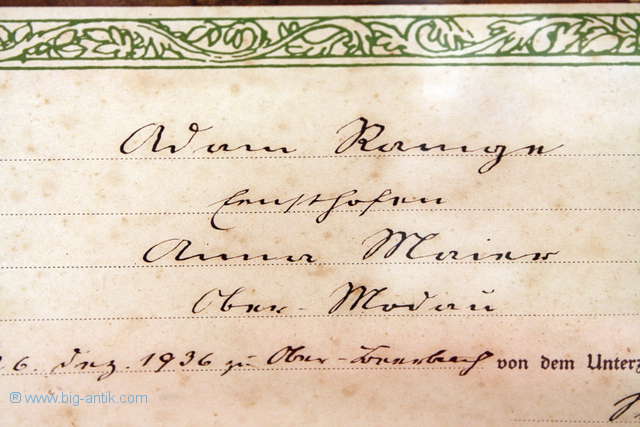 Adam Range
Ernsthofen
Anna Maier
Ober-Modau
26. Dez. 1936 zu Ober-Beerbach von dem Unterz
® www.big-antik.com